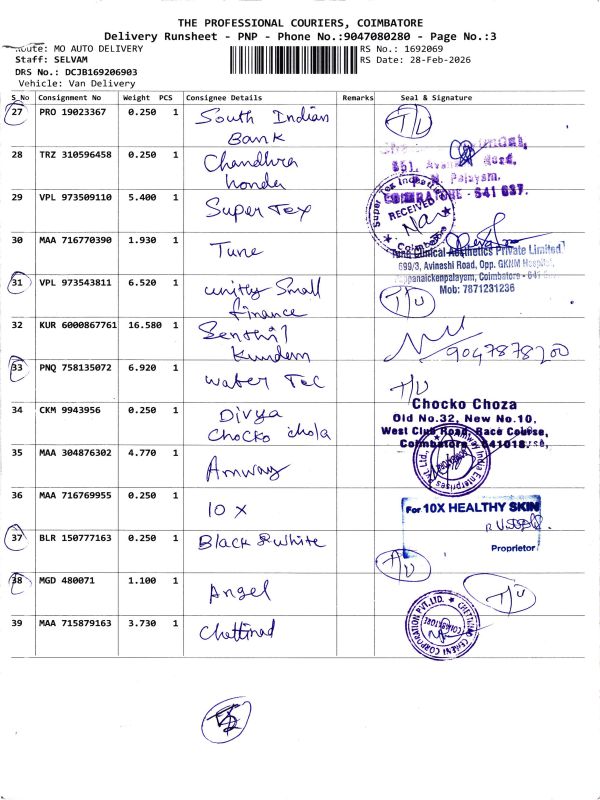 THE PROFESSIONAL COURIERS, COIMBATORE
Delivery Runsheet - PNP - Phone No.:9047080280 - Page No.:3
Route: MO AUTO DELIVERY
RS No.: 1692069
Staff: SELVAM
RS Date: 28-Feb-2026
DRS No.: DCJB169206903
Vehicle: Van Delivery
S_No Consignment No Weight PCS Consignee Details Remarks Seal & Signature
27 PRO 19023367 0.250 1 South Indian
Bank
T/U
28 TRZ 310596458 0.250 1 Chandhra
honda
Palayam.
- 641 037.
29 VPL 973509110 5.400 1 Super Tex
RECEIVED
Coimbatore
30 MAA 716770390 1.930 1 Tune
Clinical Aesthetics Private Limited
699/3, Avinashi Road, Opp. GKNM Hospital,
Pappanaickenpalayam, Coimbatore - 641
Mob: 7871231236
31 VPL 973543811 6.520 1 unitly Small
finance
T/U
32 KUR 6000867761 16.580 1 Senthil
Kundem
9047878200
33 PNQ 758135072 6.920 1 water Tec
T/U
34 CKM 9943956 0.250 1 Divya
Chocko chola
Chocko Choza
Old No.32, New No.10,
West Club Road, Race Course,
Coimbatore - 641018.
35 MAA 304876302 4.770 1 Amway
Amway India Enterprises Pvt. Ltd.,
36 MAA 716769955 0.250 1 10 X
For 10X HEALTHY SKIN
Proprietor
37 BLR 150777163 0.250 1 Black & white
T/U
38 MGD 480071 1.100 1 Angel
T/U
39 MAA 715879163 3.730 1 Chettinad
CHETTINAD CEMENT CORPORATION PVT. LTD.